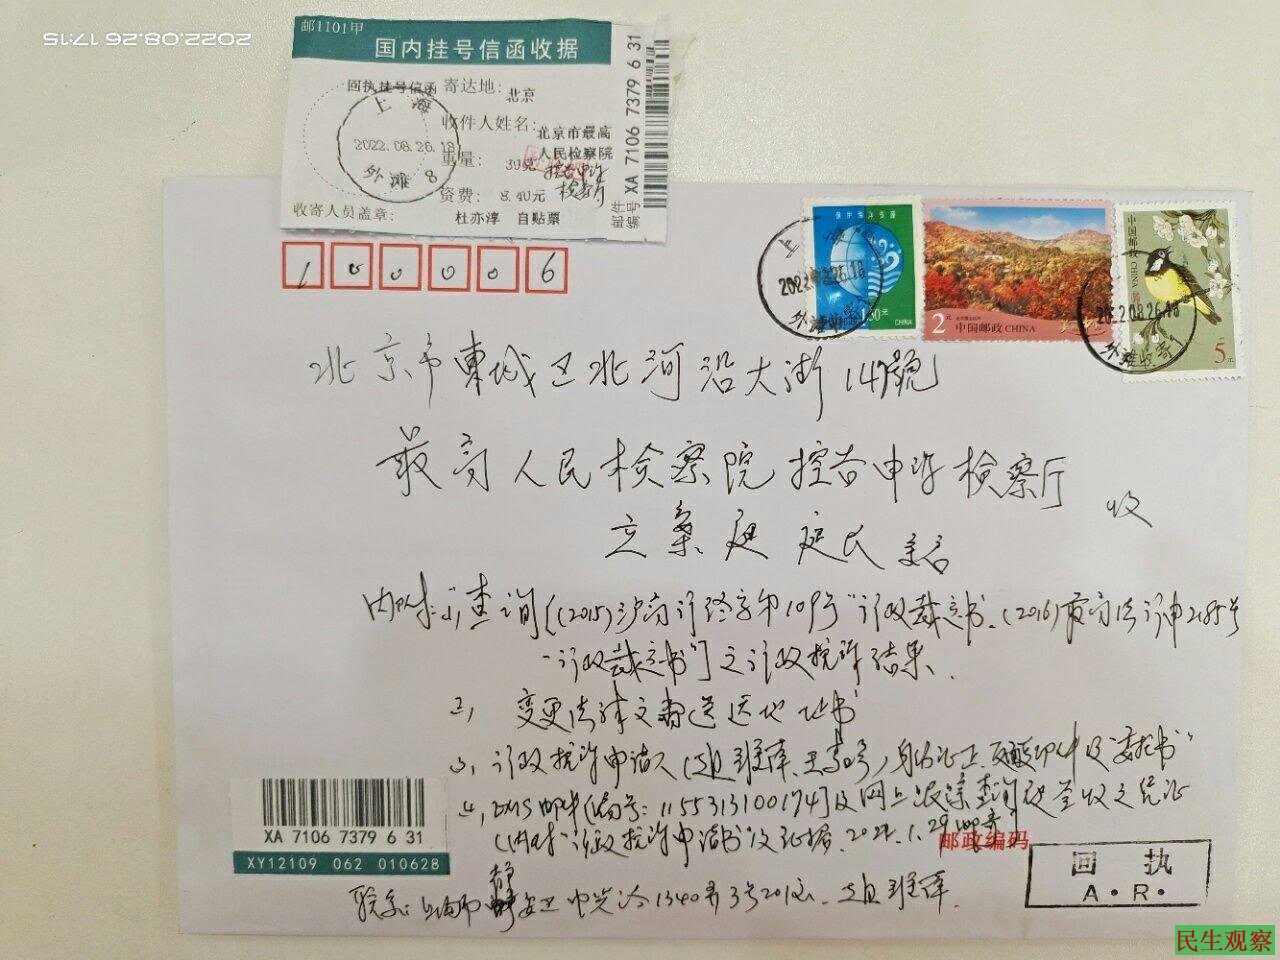 2022.08.26 17:15
邮1101甲
国内挂号信函收据
回执挂号信函 寄达地：北京
收件人姓名：北京市最高
人民检察院
控告申诉
检察厅
重量：39克
资费：8.40元
收寄人员盖章：杜亦淳 自贴票
上海
2022.08.26.18
外滩 8
邮件编号 XA 7106 7379 6 31
100006
保护海洋资源
1.50元
CHINA
2元
中国邮政 CHINA
中国邮政 CHINA
5元
上海
2022.08.26.18
外滩收寄
2022.08.26.18
外滩收寄
北京市東城区北河沿大街147號
最高人民检察院控告申诉检察厅 收
立案庭庭长 亲启
内附：1，查询[(2015)沪高行终字第109号"行政裁定书、(2016)最高法行申2185号
"行政裁定书"]之行政抗诉结果、
2，变更法律文書送达地址书
3，行政抗诉申请人
身份证正反
复印件及"委托书"
4，EMS邮件[编号：1155313100174]及网上跟踪查询被签收之凭证
(内附"行政抗诉申请书"及证据、
邮政编码
联系：上海市静安区中兴路1340弄3号201室
XA 7106 7379 6 31
XY12109 062 010628
回执
A·R·
民生观察